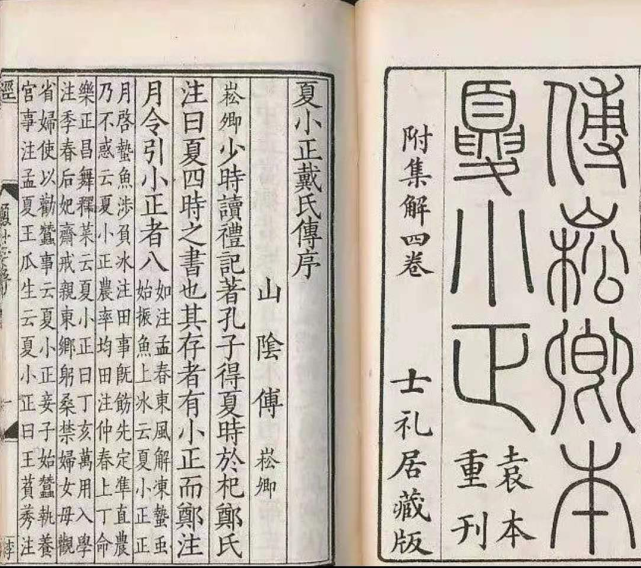 傅崧卿本
夏小正
袁本
重刊
附集解四卷
士礼居藏版
夏小正戴氏傳序
山陰傅 崧卿
崧卿少時讀禮記著孔子得夏時於杞鄭氏
注曰夏四時之書也其存者有小正而鄭注
月令引小正者八
如注孟春東風解凍蟄虫
始振魚上冰云夏小正正
月啓蟄魚涉負冰注田事既飭先定準直農
乃不惑云夏小正農率均田注仲春上丁命
樂正昌舞釋菜云夏小正曰丁亥萬用入學
注季春后妃齋戒親東鄉躬桑禁婦女毋觀
省婦使以勸蠶事云夏小正妾子始蠶執養
宮事注孟夏王瓜生云夏小正曰王萯莠注